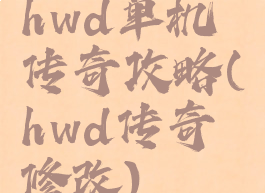 hwd单机
传奇攻略(
hwd传奇
修改)